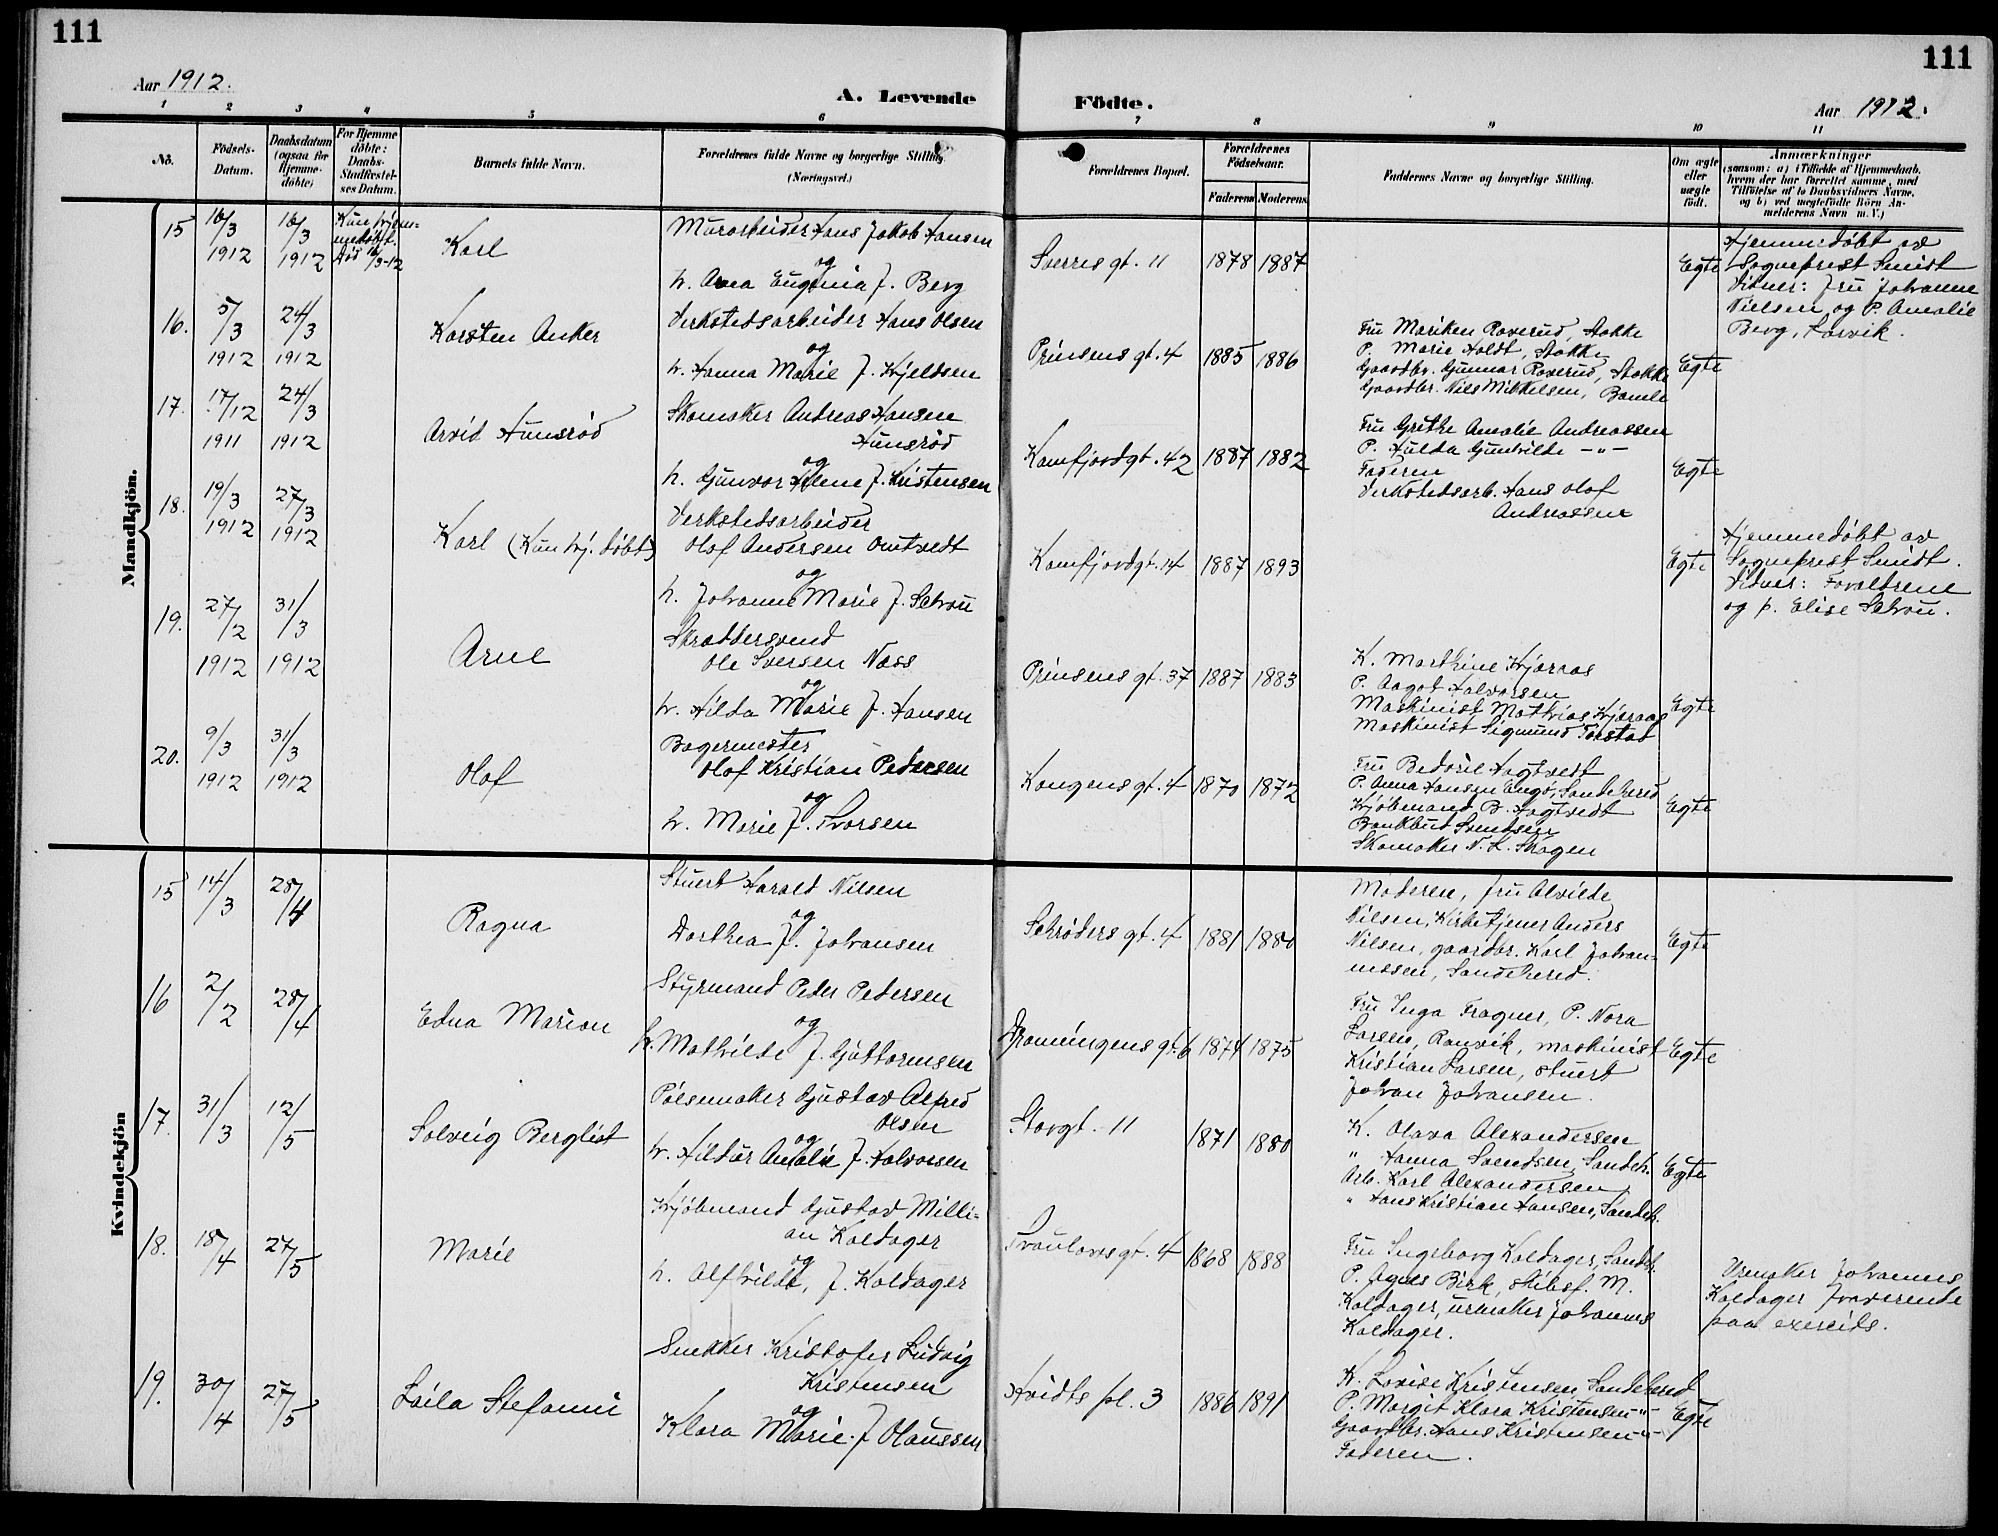 111
111
Aar 1912.
A. Levende
Födte.
Aar 1912.
1 2 3 4 5 6 7 8 9 10 11
No.
Födsels-Datum.
Daabsdatum (ogsaa for Hjemme-döbte)
For Hjemme döbte: Daabs-Stadfæstel-ses Datum.
Barnets fulde Navn.
Forældrenes fulde Navne og borgerlige Stilling.
(Næringsvei.)
Forældrenes Bopæl.
Forældrenes Födselsaar.
Faderens Moderens
Faddernes Navne og borgerlige Stilling.
Om ægte eller uægte födt.
Anmærkninger
(saasom: a) i Tilfælde af Hjemmedaab, hvem der har forrettet samme, med Tilföielse af to Daabsvidners Navne, og b) ved uægtefödte Börn An-melderens Navn m. V.)
Mandkjön.
15 16/3 1912 16/3 1912
Kun hjem-
medøbt.
Død 16/3-12
Karl
Murarbeider Hans Jakob Hansen
og
h. Anna Eugenia f. Berg
Sverres gt. 11 1878 1887
Egte
Hjemmedøbt av
Sogneprest Smidt
Vidner: Fru Johanne
Nielsen og P. Amalie
Berg, Larvik.
16. 5/3 1912 24/3 1912
Karsten Anker
Verkstedsarbeider Hans Olsen
og
h. Hanna Marie f. Kjeldsen
Prinsens gt. 4 1885 1886
Fru Mariken Raverud, Stokke
P. Marie Holdt, Stokke
Gaardbr. Gunnar Raverud, Stokke
Gaardbr. Nils Mikkelsen, Bamle
Egte
17. 17/12 1911 24/3 1912
Arvid Hunsrød
Skomaker Andreas Hansen
Hunsrød
og
h. Gunvor Helene f. Kristensen
Kamfjordgt. 42 1887 1882
Fru Grethe Amalie Andreassen
P. Hulda Gunhilde -"-
Faderen
Verkstedsarb. Hans Olaf
Andreassen
Egte
18. 19/3 1912 27/3 1912
Karl (Kun hj. døbt)
Verkstedsarbeider
Olaf Andersen Omtvedt
og
h. Johanne Marie f. Schrou
Kamfjordgt. 14 1887 1893
Egte
Hjemmedøbt av
Sogneprest Smidt.
Vidner: Forældrene
og p. Elise Schrou.
19. 27/2 1912 31/3 1912
Arne
Skræddersvend
Ole Iversen Næss
og
h. Hilda Marie f. Hansen
Prinsens gt. 37 1887 1883
K. Marthine Kjæraas
P. Aagot Halvorsen
Maskinist Mathias Kjæraas
Maskinist Sigmund Torstad
Egte
20. 9/3 1912 31/3 1912
Olaf
Bagermester
Olaf Kristian Pedersen
og
h. Marie f. Ivarsen
Kongens gt. 4 1870 1872
Fru Bedoile Hogtvedt
P. Anna Hansen Engø, Sandeherred
Kjøbmand B. Hogtvedt
Bankbud Svendsen
Skomaker N. L. Skogen
Egte
Kvindekjön
15 14/3 28/4
Ragna
Stuert Harald Nilsen
og
Dorthea f. Johansen
Schrøders gt. 4 1881 1880
Moderen, Fru Alvilde
Nilsen, Kirketjener Anders
Nilsen, gaardbr. Karl Johan-
nessen, Sandeherred.
Egte
16 2/2 28/4
Edna Marion
Styrmand Peder Pedersen
og
h. Mathilde f. Guttormsen
Dronningens gt. 6 1874 1875
Fru Inga Fragner, P. Nora
Larsen, Ranvik, maskinist
Kristian Larsen, stuert
Johan Johansen.
Egte
17. 31/3 12/5
Solveig Bergliot
Pølsemaker Gustav Alfred
Olsen
og
h. Hildur Amalie f. Halvorsen
Storgt. 11 1871 1880
K. Olava Alexandersen
" Hanna Svendsen, Sandeh.
Arb. Karl Alexandersen
" Hans Kristian Hansen, Sandeh.
Egte
18. 18/4 27/5
Marie
Kjøbmand Gustav Milli-
an Kaldager
og
h. Alfhilde, f. Kaldager
Traulavs gt. 4 1868 1888
Fru Ingeborg Kaldager, Sandeh.
P. Agnes Birk, skibsf. M.
Kaldager, urmaker Johannes
Kaldager.
Urmaker Johannes
Kaldager fraværende
paa exercids.
19. 30/4 27/5
Laila Stefanie
Snekker Kristofer Ludvig
Kristensen
og
Klara Marie f. Olaussen
Hvidts pl. 3 1886 1891
K. Lovise Kristensen, Sandeherred
P. Margit Klara Kristensen -"-
Gaardbr. Hans Kristensen -"-
Faderen.
Egte